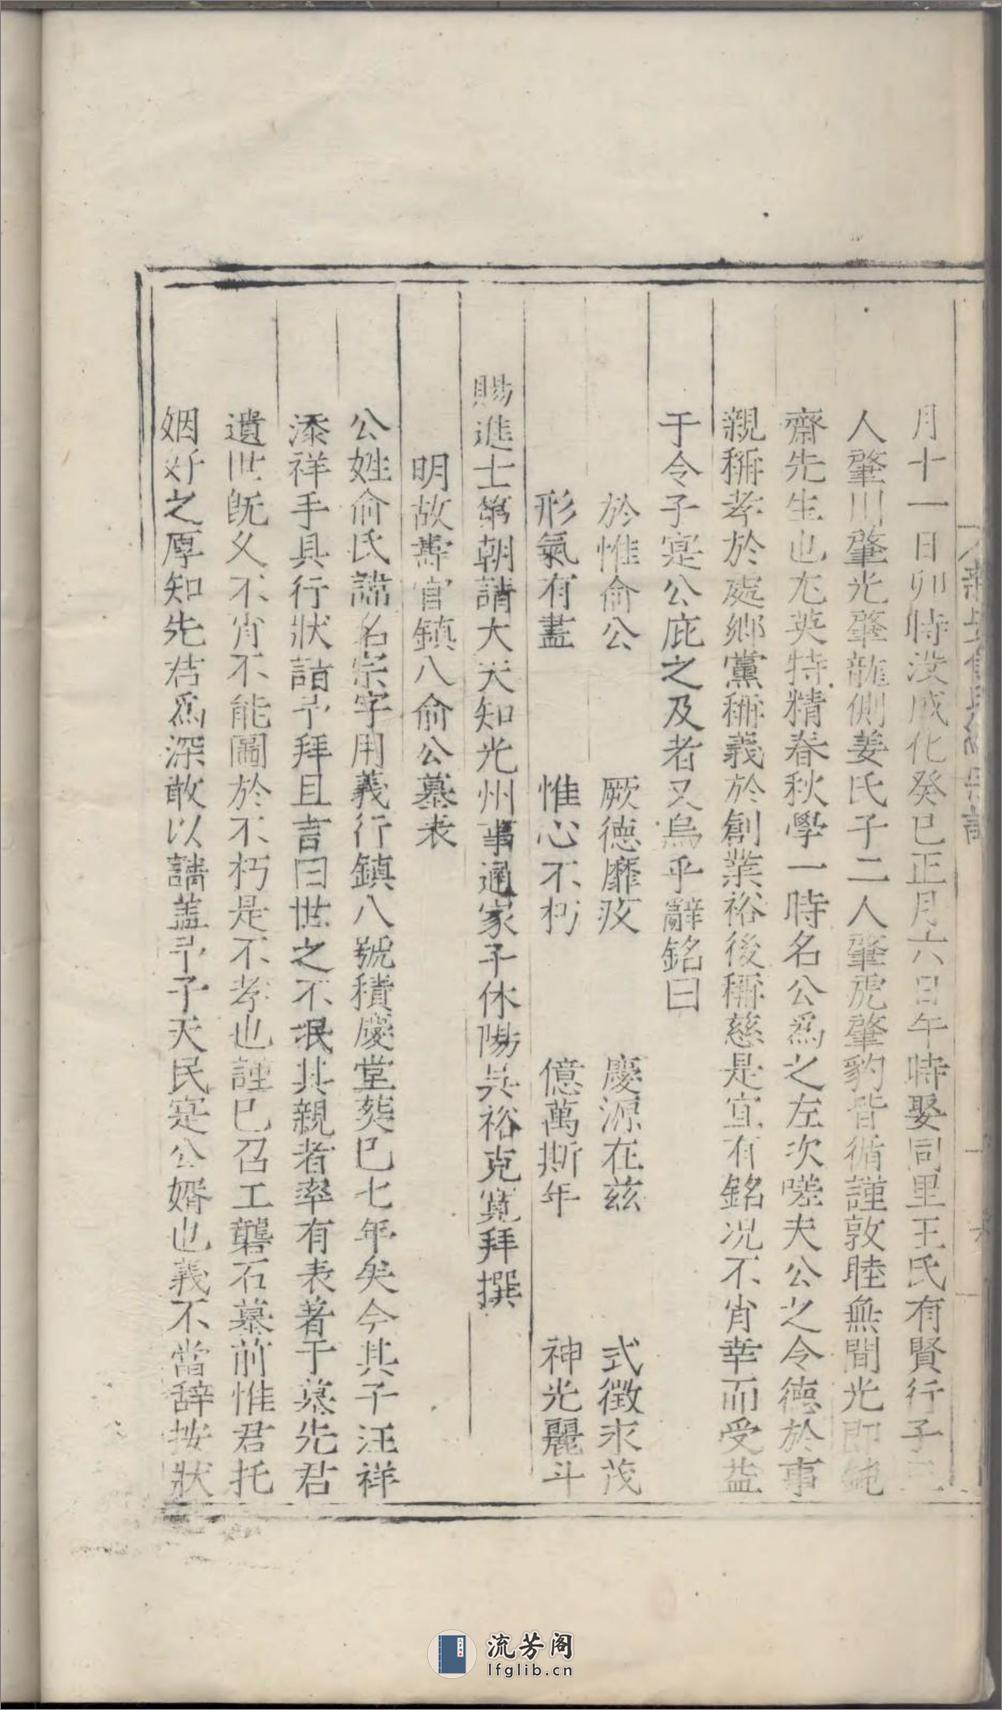 月十一日卯時没成化癸巳正月六日午時娶同里王氏有賢行子三
人肇川肇光肇龍側姜氏子二人肇虎肇豹皆循謹敦睦無間光即純
齋先生也尤英特精春秋學一時名公爲之左次嗟夫公之令德於事
親稱孝於處鄉黨稱義於創業裕後稱慈是宜有銘况不肖幸而受益
于令子寔公庇之及者又烏乎辭銘曰
於惟俞公 厥德靡疚 慶源在兹 式徵永茂
形氣有盡 惟心不朽 億萬斯年 神光麗斗
賜進士第朝請大夫知光州事通家子休陽吳裕克寬拜撰
明故壽官鎮八俞公墓表
公姓俞氏諱名宗字用義行鎮八號積慶堂葬已七年矣今其子汪祥
添祥手具行狀詣予拜且言曰世之不泯其親者率有表著于墓先君
遺世既久不肖不能圖於不朽是不孝也謹已召工礱石墓前惟君托
姻好之厚知先君爲深敢以請蓋予子天民寔公婿也義不當辞按狀
流芳阁
lfglib.cn